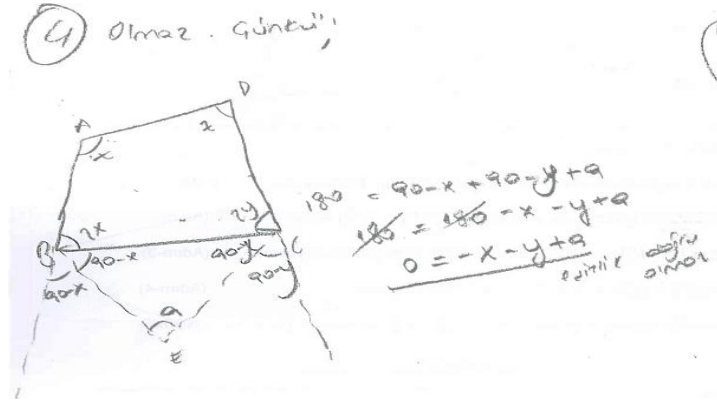 4 Olmaz. Çünkü;
A
D
x
z
B
2x
2y
C
90-x
90-y
90-x
90-y
a
E
180 = 90-x + 90-y + a
180 = 180 - x - y + a
0 = -x - y + a
eşitlik doğru
olmaz